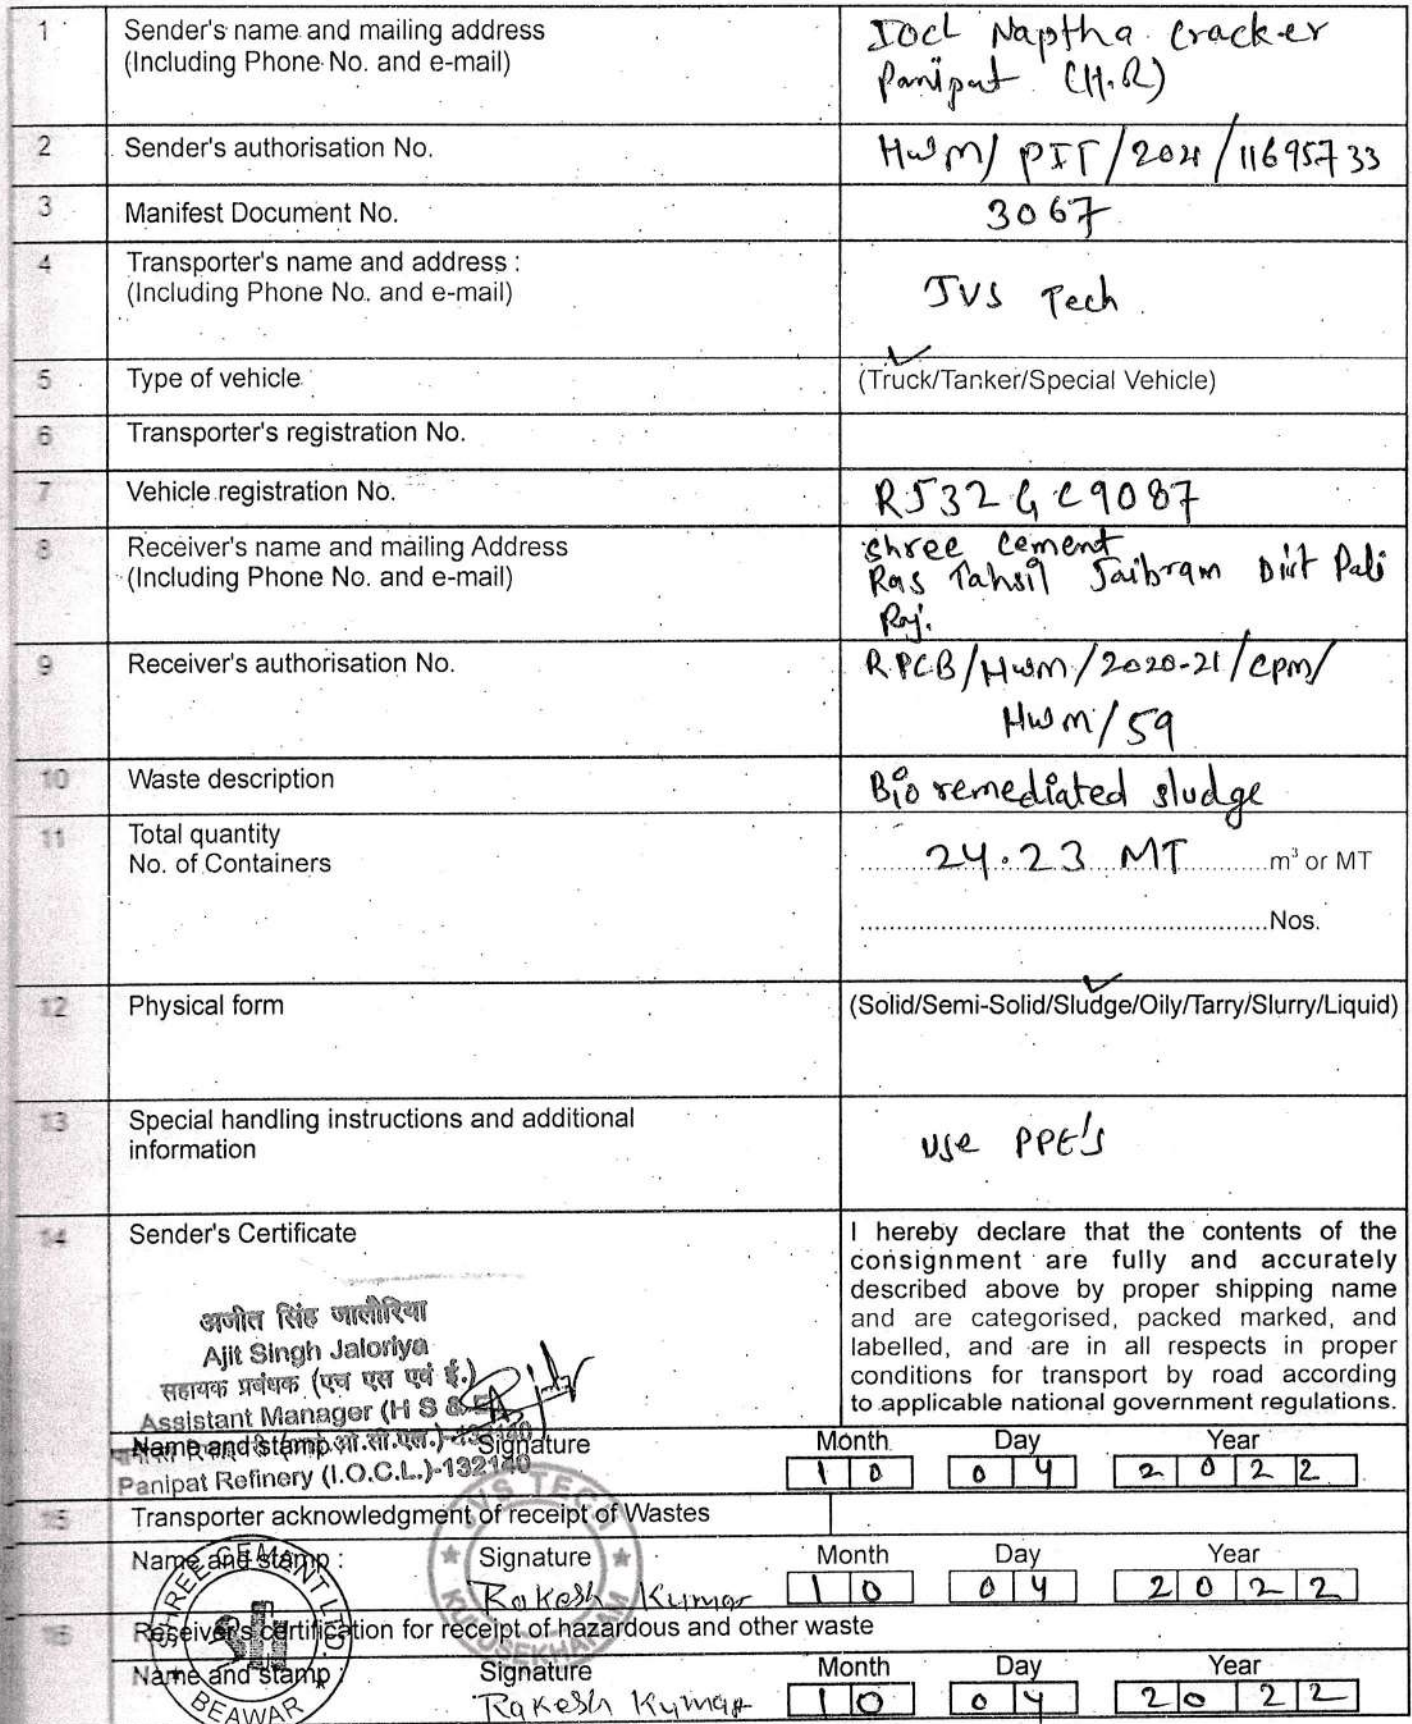 1 Sender's name and mailing address
(Including Phone No. and e-mail)
IOCL Naptha Cracker
Panipat (H.R)
2 Sender's authorisation No.
HWM/ PIT/2021/11695733
3 Manifest Document No.
3067
4 Transporter's name and address :
(Including Phone No. and e-mail)
JVS Tech
5 Type of vehicle
(Truck/Tanker/Special Vehicle)
6 Transporter's registration No.
7 Vehicle registration No.
RJ32GC9087
8 Receiver's name and mailing Address
(Including Phone No. and e-mail)
Shree Cement
Ras Tahsil Jaibram Dist Pali
Raj.
9 Receiver's authorisation No.
RPCB/HWM/2020-21/CPM/
HWM/59
10 Waste description
Bio remediated sludge
11 Total quantity
No. of Containers
24.23 MT m³ or MT
Nos.
12 Physical form
(Solid/Semi-Solid/Sludge/Oily/Tarry/Slurry/Liquid)
13 Special handling instructions and additional
information
Use PPE's
14 Sender's Certificate
I hereby declare that the contents of the
consignment are fully and accurately
described above by proper shipping name
and are categorised, packed marked, and
labelled, and are in all respects in proper
conditions for transport by road according
to applicable national government regulations.
अजीत सिंह जालौरिया
Ajit Singh Jaloriya
सहायक प्रबंधक (एच एस एवं ई.)
Assistant Manager (H S & E)
Name and stamp Signature Month Day Year
Panipat Refinery (I.O.C.L.)-132140
10 04 2022
15 Transporter acknowledgment of receipt of Wastes
JVS TECH
Name and stamp : Signature Month Day Year
Rakesh Kumar 10 04 2022
SHREE CEMENT LTD.
BEAWAR
16 Receiver's certification for receipt of hazardous and other waste
Name and stamp : Signature Month Day Year
Rakesh Kumar 10 04 2022